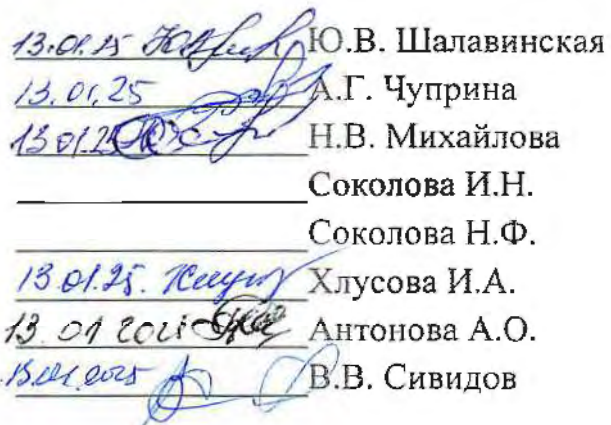 13.01.25 Ю.В. Шалавинская
13.01.25 А.Г. Чуприна
13.01.25 Н.В. Михайлова
Соколова И.Н.
Соколова Н.Ф.
13.01.25. Хлусова И.А.
13.01 2025 Антонова А.О.
13.01.2025 В.В. Сивидов